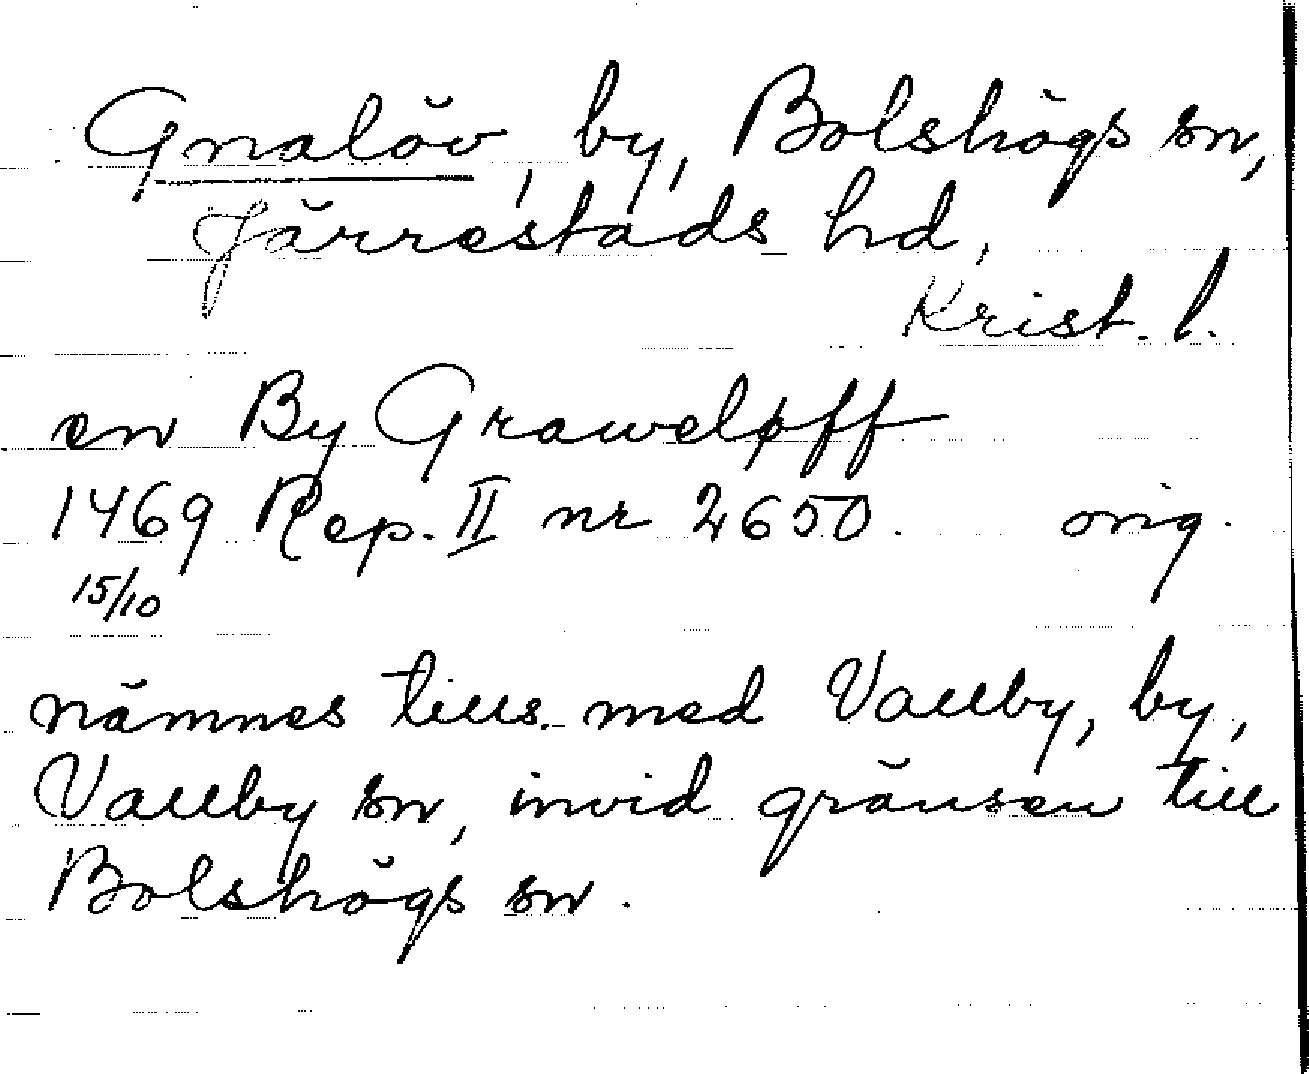 Gnalöv, by, Bolshögs sn,
Järrestads hd,
Krist. l.
en By Graweløff
1469 Rep. II nr 2650. orig.
15/10
nämnes tills. med Vallby, by,
Vallby sn, invid gränsen till
Bolshögs sn.